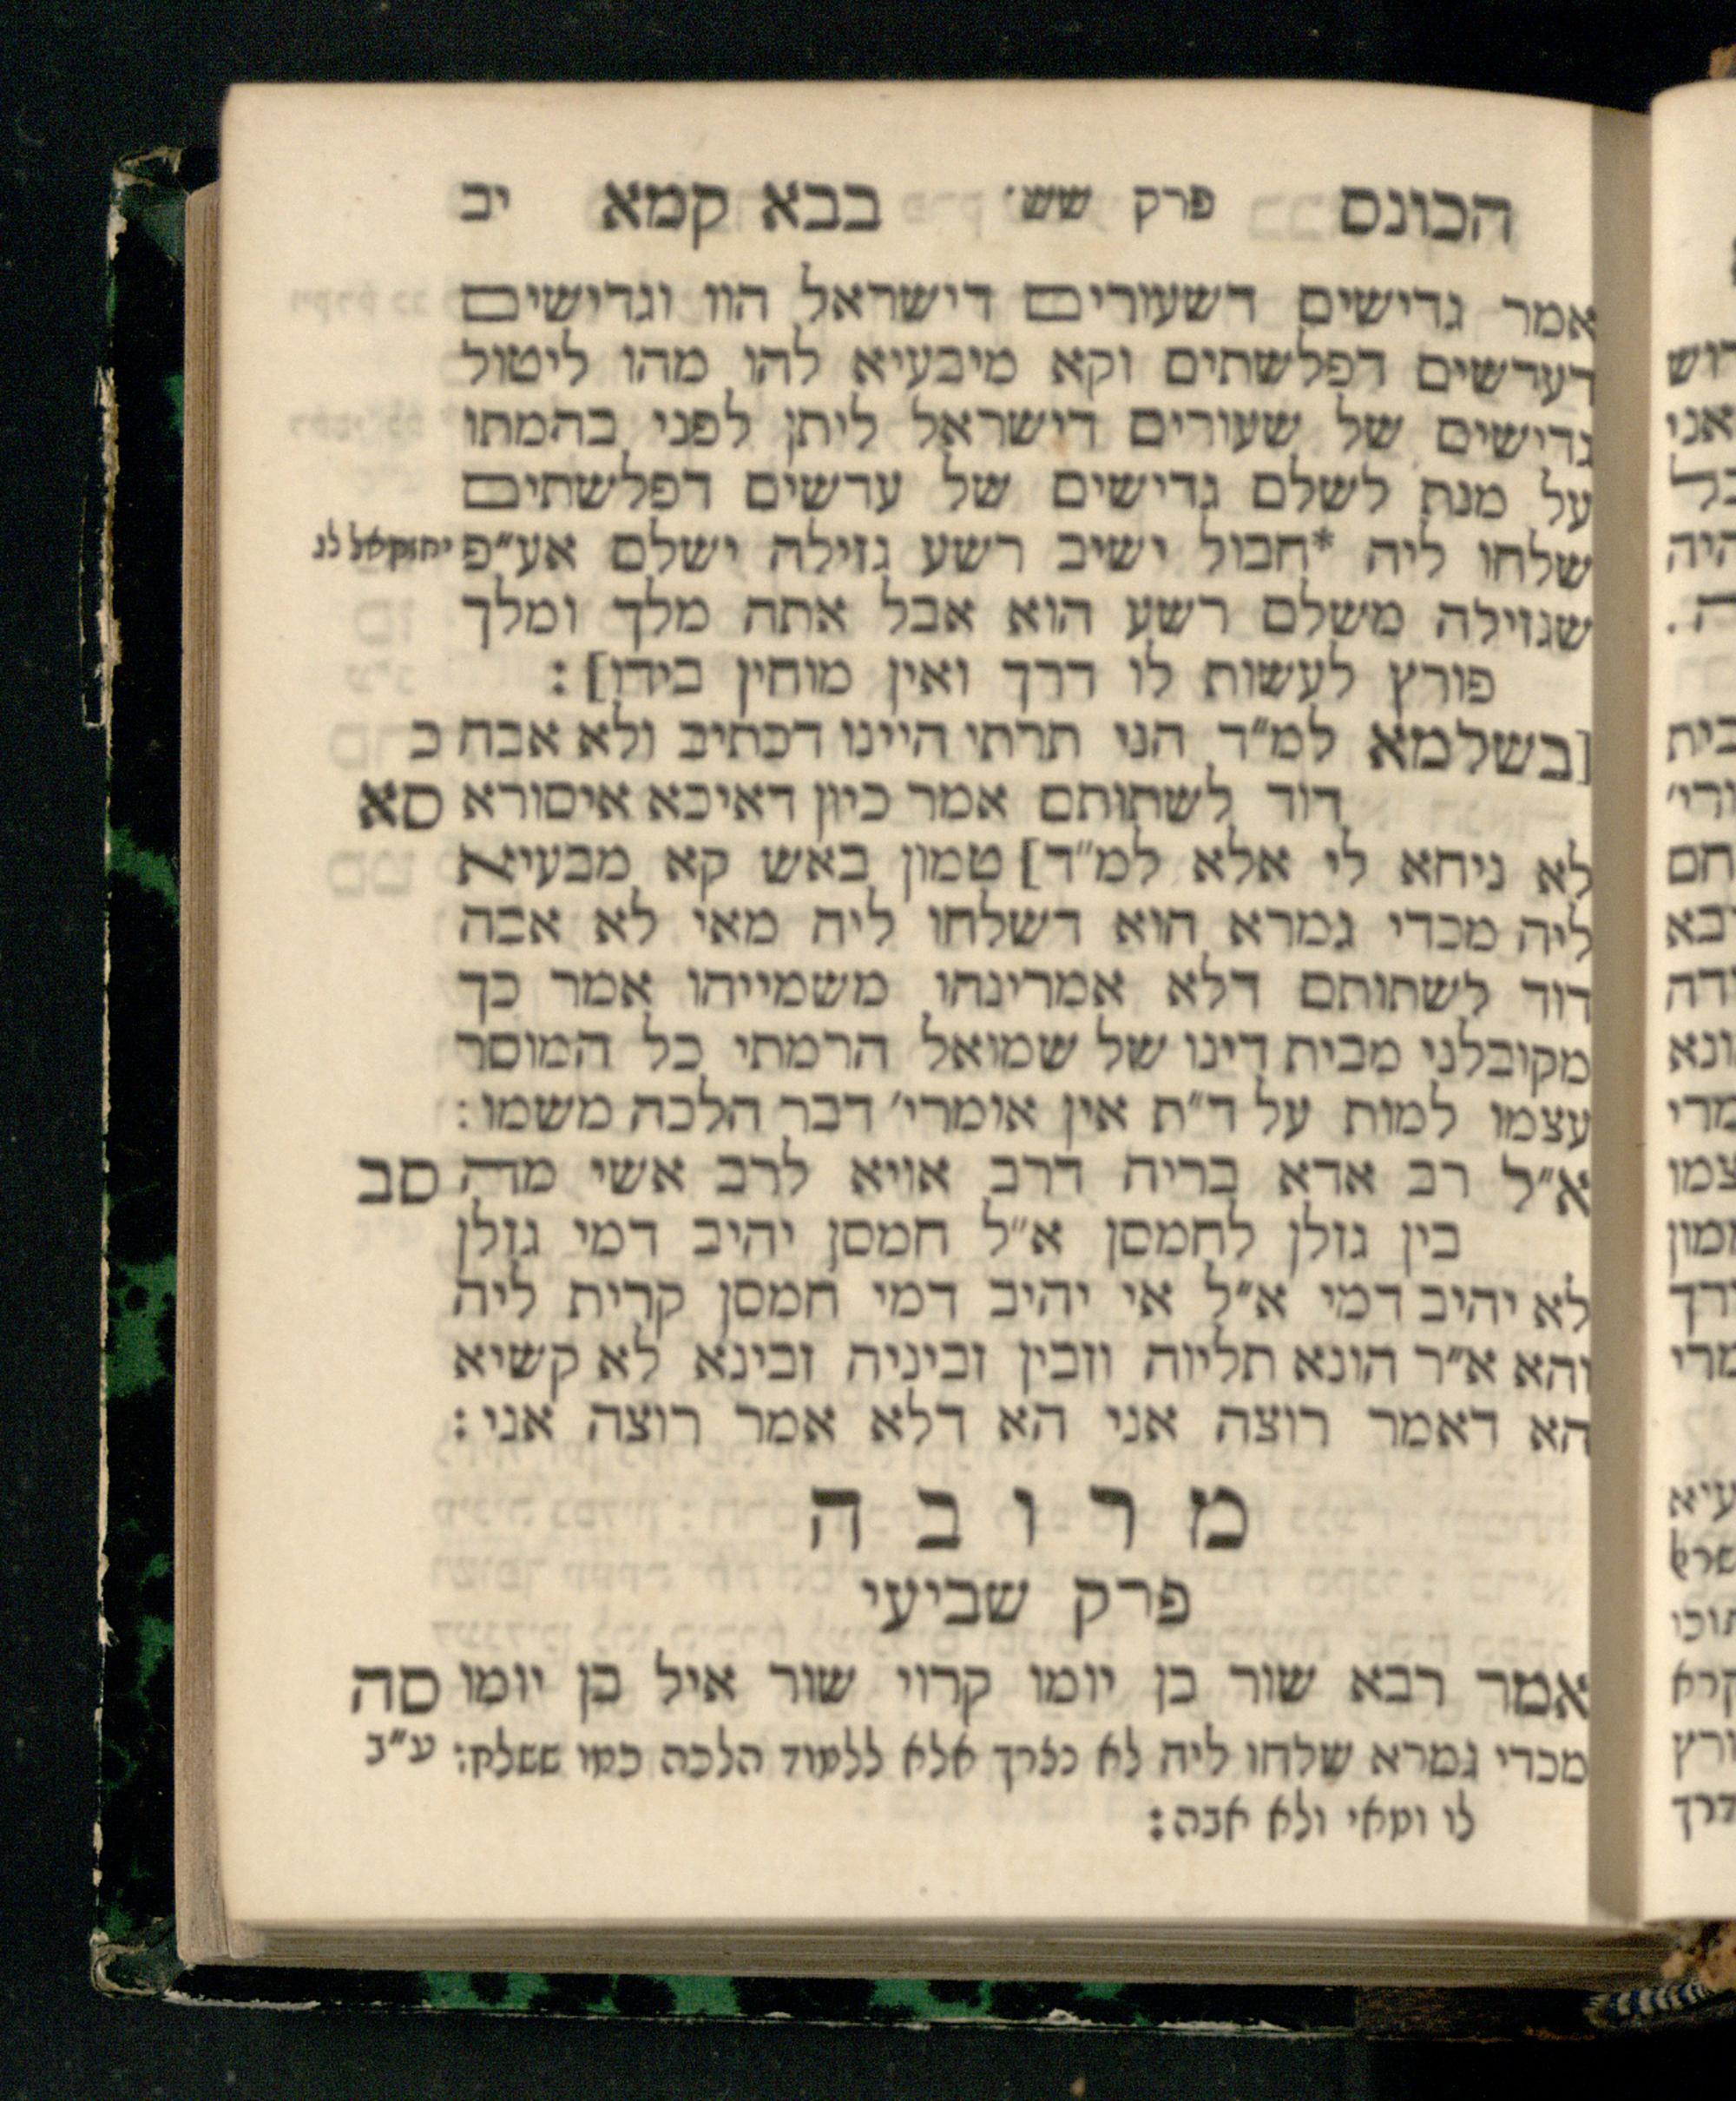 הכונס פרק שש׳ בבא קמא יב
אמר גדישים דשעורים דישראל הוו וגדישים
דערשים דפלשתים וקא מיבעיא להו מהו ליטול
גדישים של שעורים דישראל ליתן לפני בהמתו
על מנת לשלם גדישים של ערשים דפלשתים
שלחו ליה *חבול ישיב רשע גזילה ישלם אע״פ יחזקאל לג
שגזילה משלם רשע הוא אבל אתה מלך ומלך
פורץ לעשות לו דרך ואין מוחין בידו] :
[בשלמא למ״ד הני תרתי היינו דכתיב ולא אבה כ
דוד לשתותם אמר כיון דאיכא איסורא סא
לא ניחא לי אלא למ״ד] טמון באש קא מבעיא
ליה מכדי גמרא הוא דשלחו ליה מאי לא אבה
דוד לשתותם דלא אמרינהו משמייהו אמר כך
מקובלני מבית דינו של שמואל הרמתי כל המוסר
עצמו למות על ד״ת אין אומרי׳ דבר הלכה משמו :
א״ל רב אדא בריה דרב אויא לרב אשי מה סב
בין גזלן לחמסן א״ל חמסן יהיב דמי גזלן
לא יהיב דמי א״ל אי יהיב דמי חמסן קרית ליה
והא א״ר הונא תליוה וזבין זביניה זבינא לא קשיא
הא דאמר רוצה אני הא דלא אמר רוצה אני :
מרובה
פרק שביעי
אמר רבא שור בן יומו קרוי שור איל בן יומו סה
מכדי גמרא שלחו ליה לא נצרך אלא ללמוד הלכה כמו ששלח: ע״ב
לו ומאי ולא אבה :